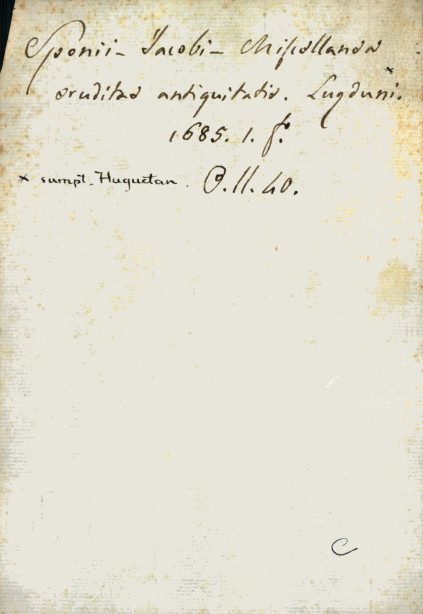 Sponii - Jacobi - Miscellanea
×
eruditae antiquitatis. Lugduni.
1685. 1. fo.
× sumpt. Huguetan. P. II. 40.
C